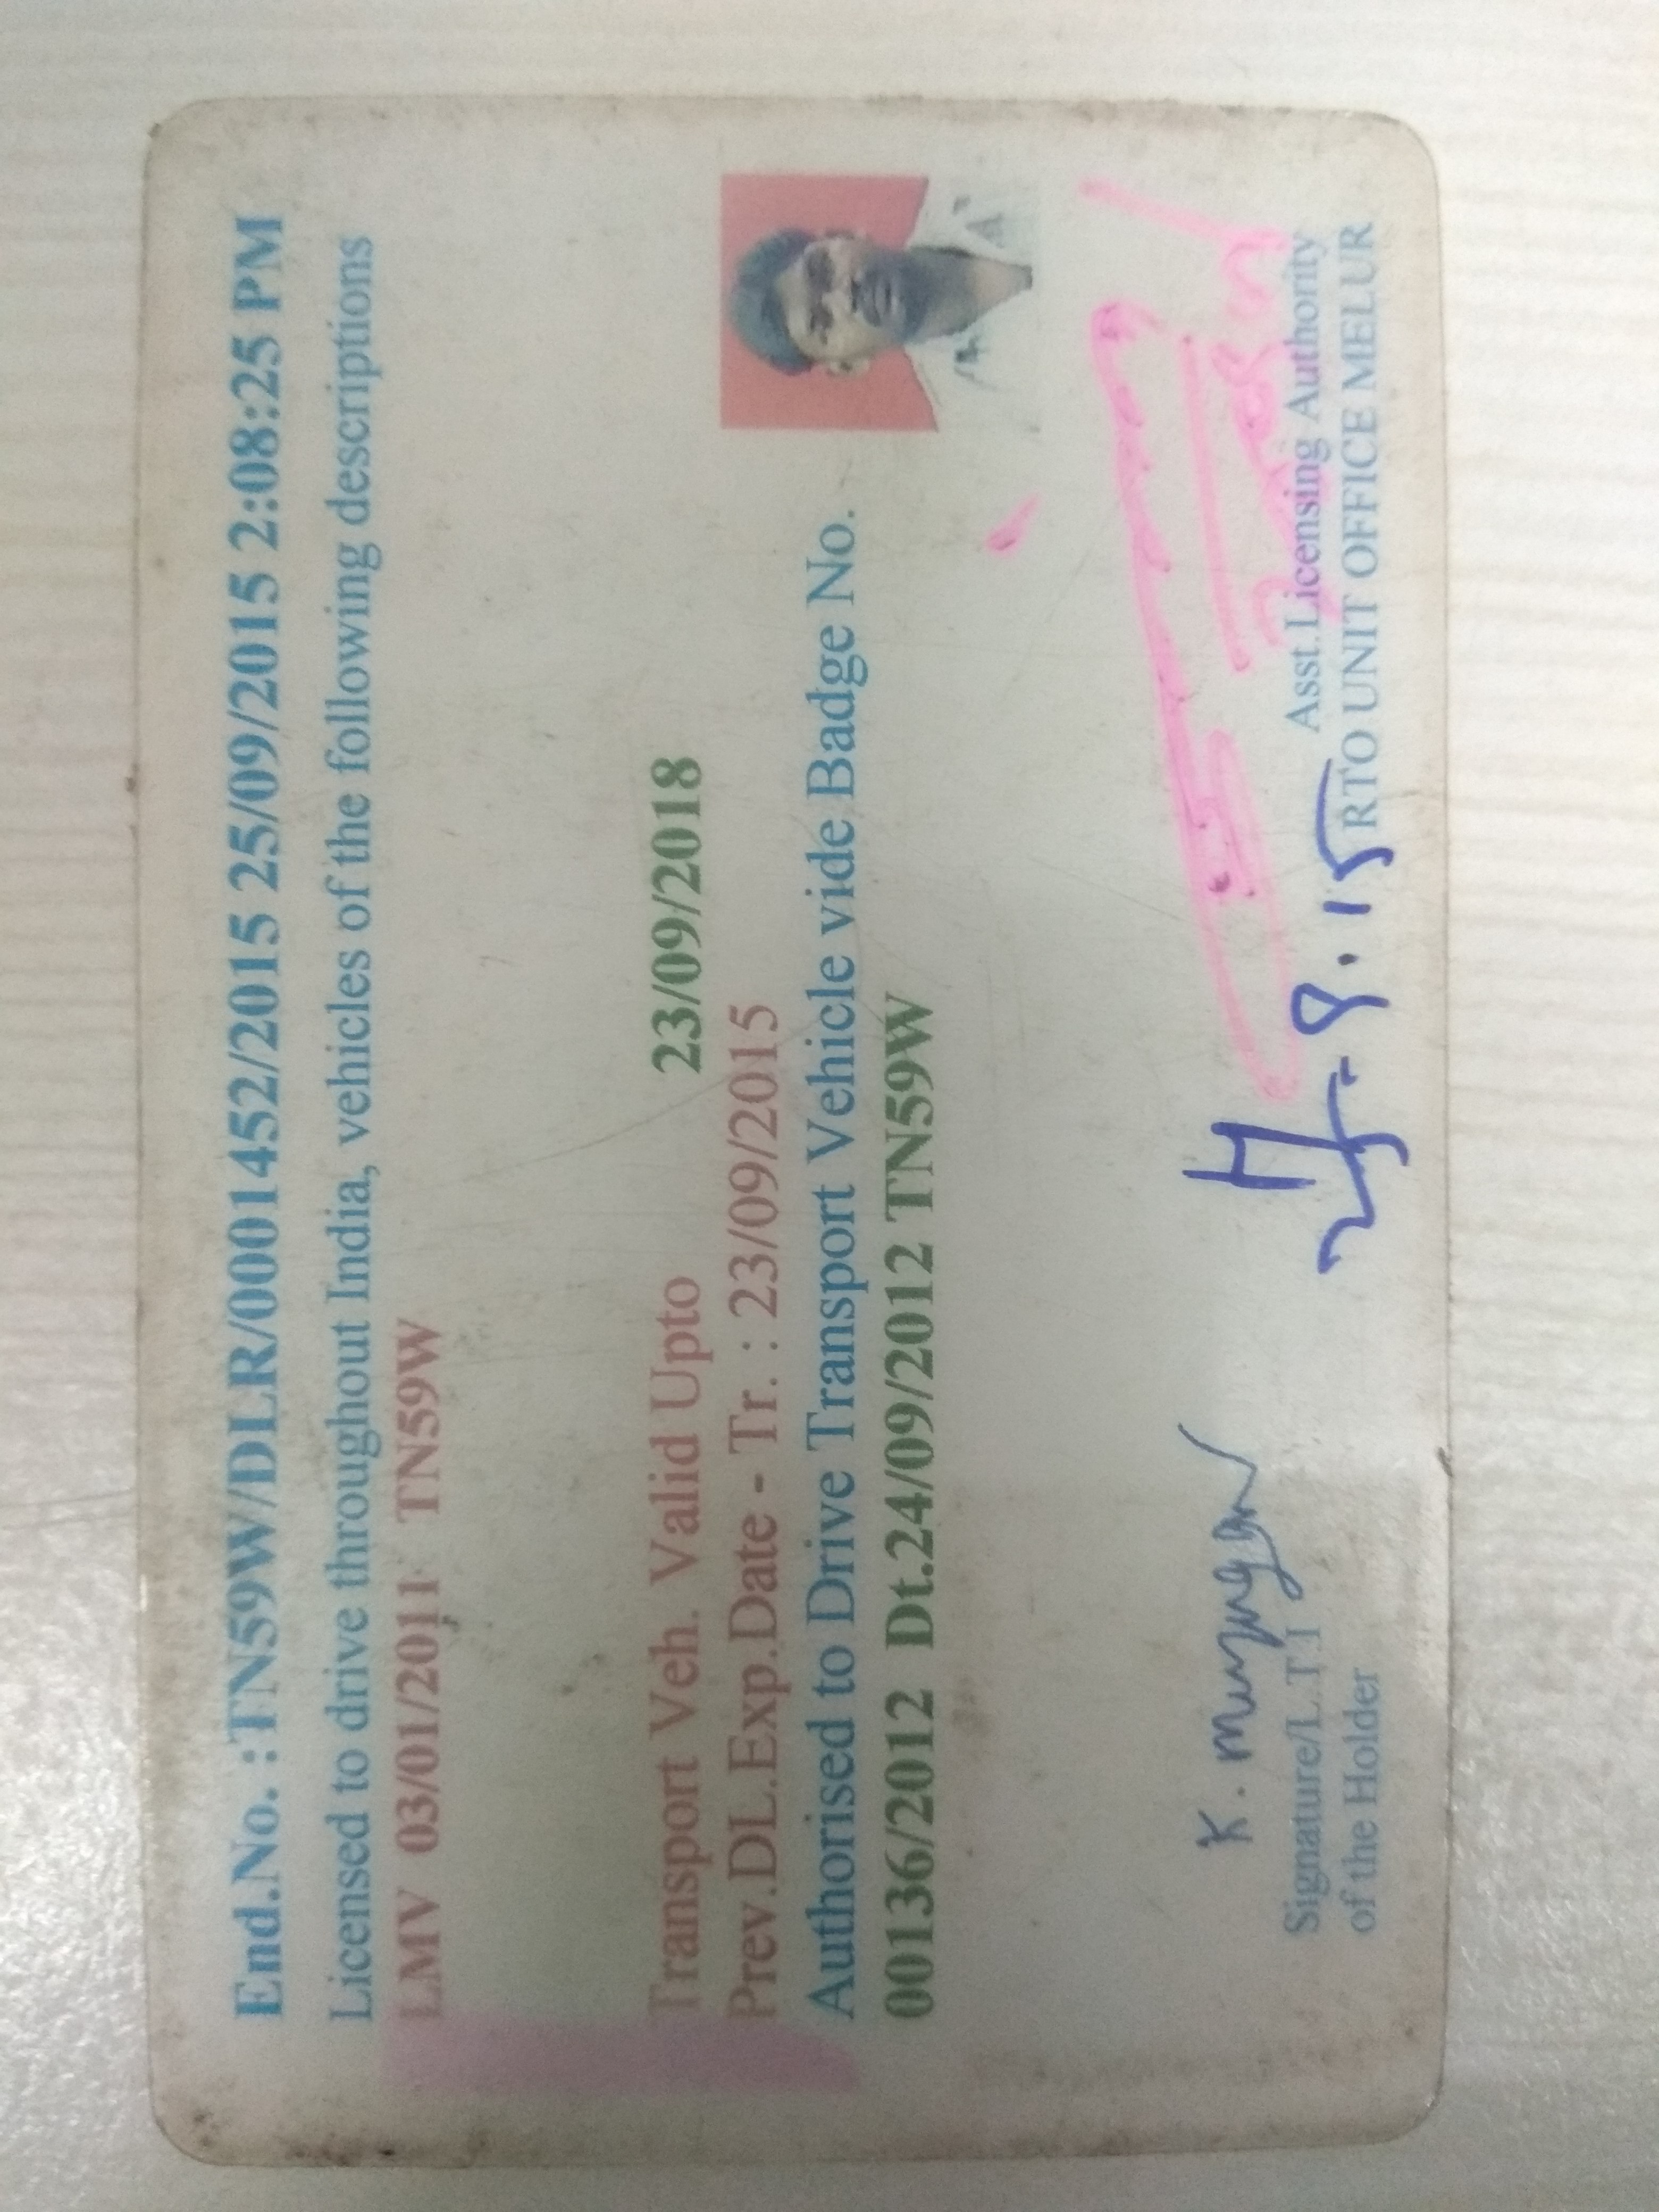 End.No. :TN59W/DLR/0001452/2015 25/09/2015 2:08:25 PM
Licensed to drive throughout India, vehicles of the following descriptions
LMV 03/01/2011 TN59W
Transport Veh. Valid Upto 23/09/2018
Prev.DL.Exp.Date - Tr. : 23/09/2015
Authorised to Drive Transport Vehicle vide Badge No.
00136/2012 Dt.24/09/2012 TN59W
K. Murugan
Signature/L.T.I
of the Holder
Asst.Licensing Authority
RTO UNIT OFFICE MELUR